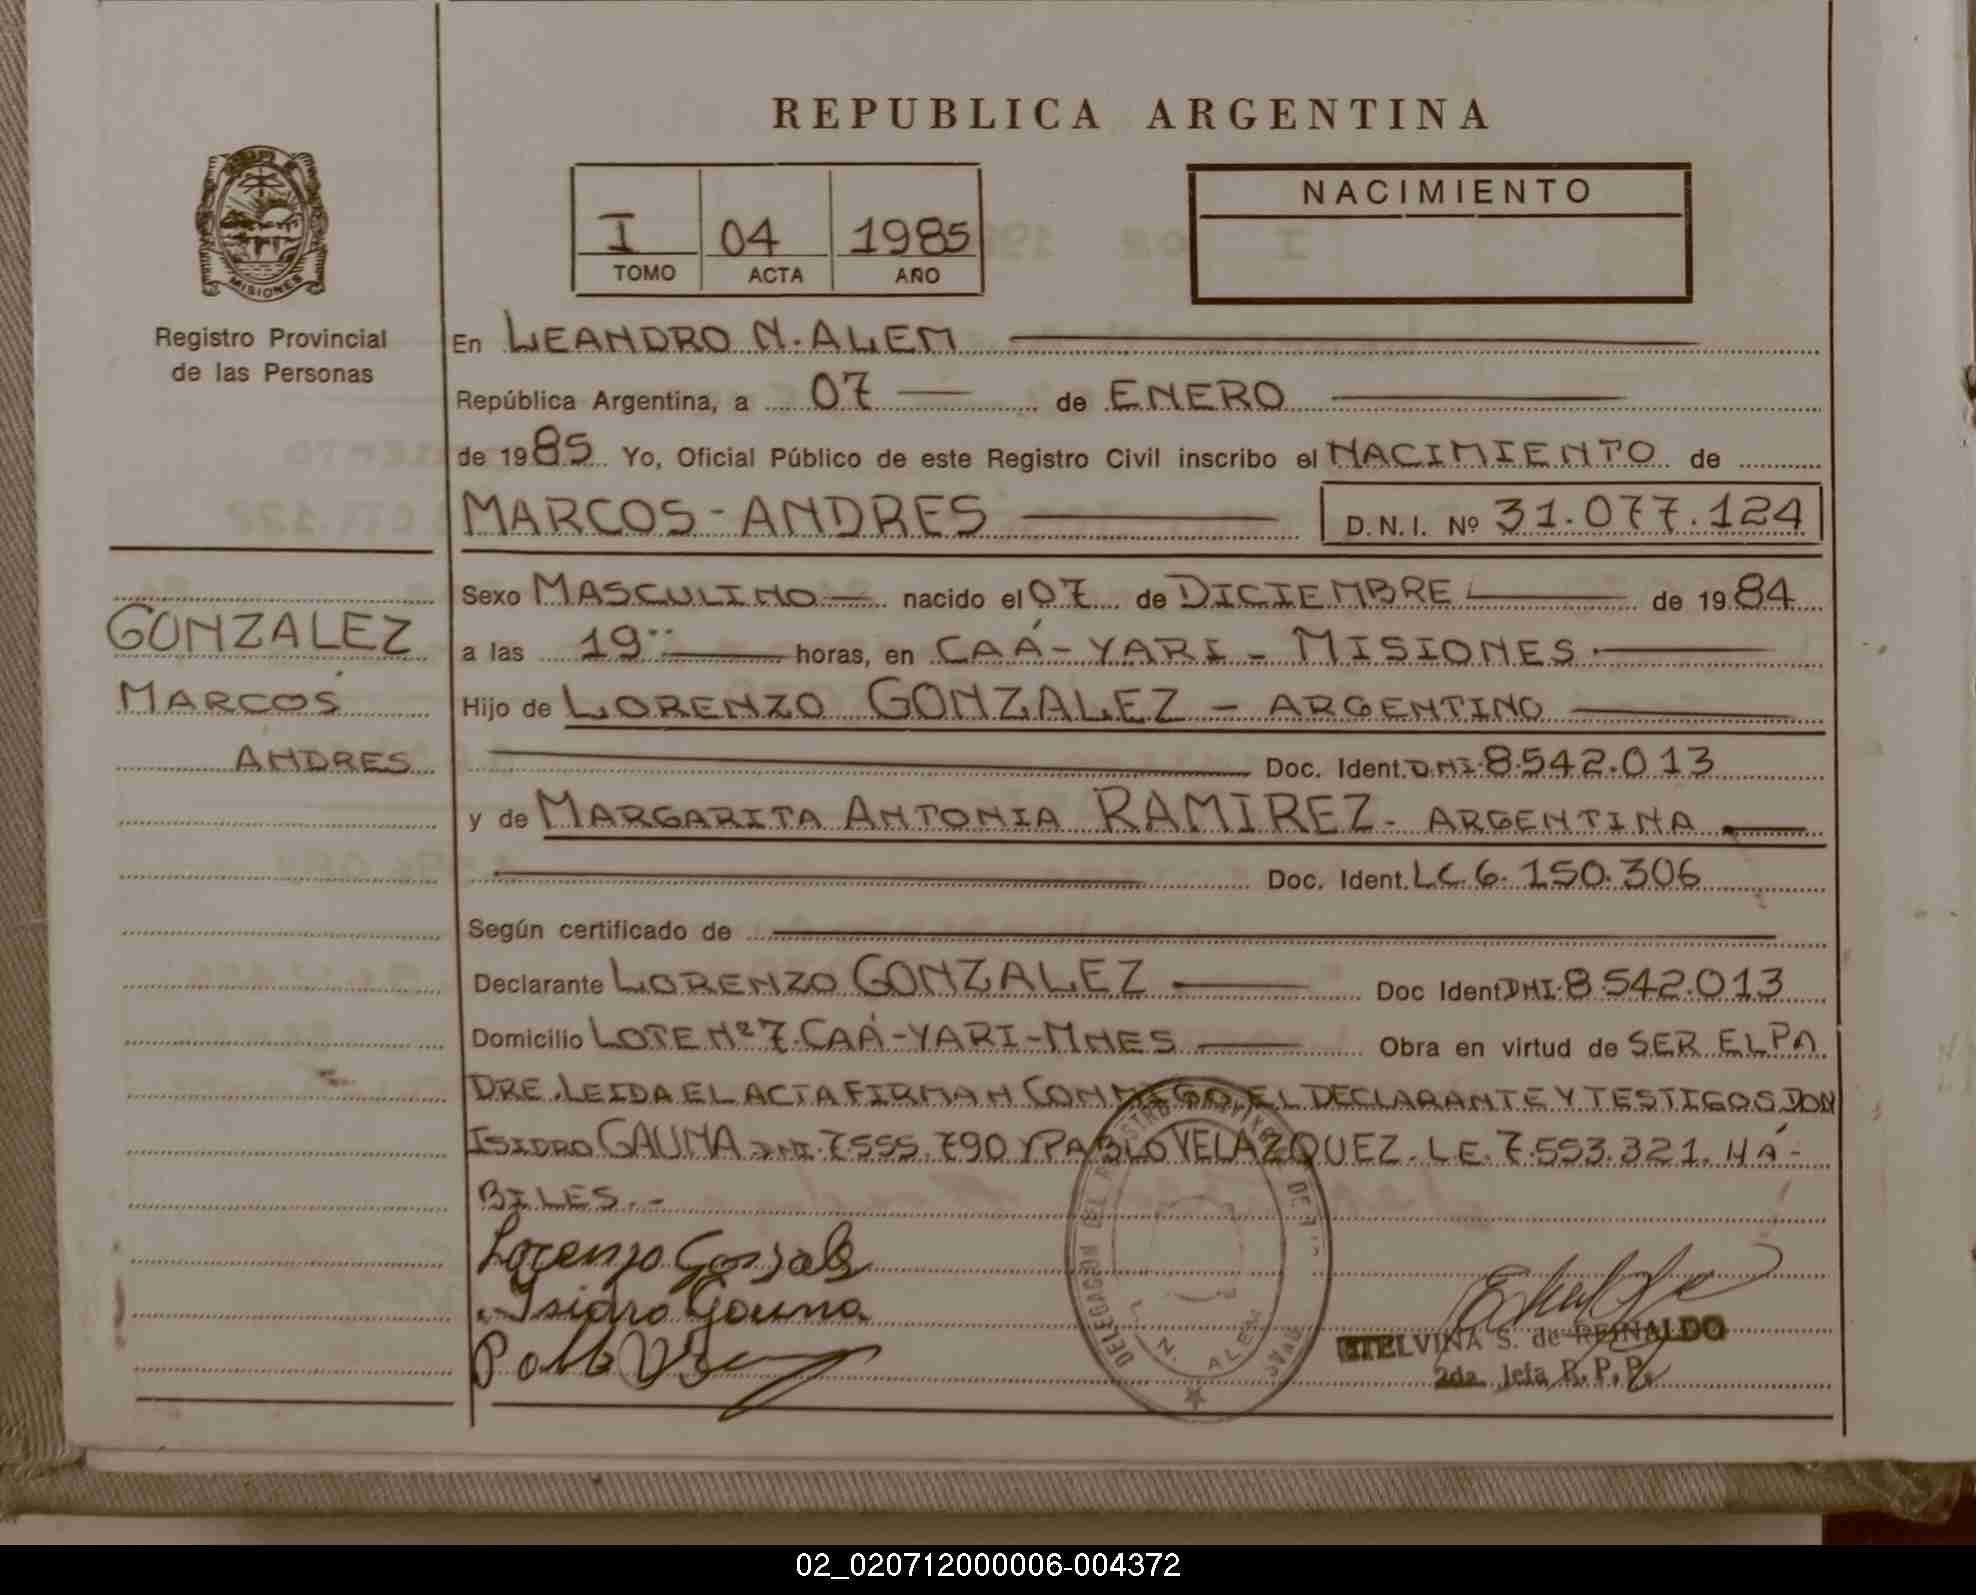 REPUBLICA ARGENTINA
MISIONES
Registro Provincial
de las Personas
I 04 1985
TOMO ACTA AÑO
NACIMIENTO
En LEANDRO N. ALEM
República Argentina, a 07 de ENERO
de 1985 Yo, Oficial Público de este Registro Civil inscribo el NACIMIENTO de
MARCOS - ANDRES D.N.I. Nº 31.077.124
GONZALEZ
MARCOS
ANDRES
Sexo MASCULINO nacido el 07 de DICIEMBRE de 1984
a las 19 horas, en CAÁ-YARI - MISIONES.
Hijo de LORENZO GONZALEZ - ARGENTINO
Doc. Ident. DNI. 8.542.013
y de MARGARITA ANTONIA RAMIREZ - ARGENTINA
Doc. Ident. LC. 6.150.306
Según certificado de
Declarante LORENZO GONZALEZ Doc Ident DNI. 8.542.013
Domicilio LOTE Nº 7. CAÁ-YARI-MNES Obra en virtud de SER EL PA
DRE. LEIDA EL ACTA FIRMAN CONMIGO EL DECLARANTE Y TESTIGOS DON
ISIDRO GAUNA DNI. 7.555.790 Y PABLO VELAZQUEZ. L.E. 7.553.321. HÁ-
BILES.-
Lorenzo Gonsale
Isidro Gauna
DELEGACION DEL REGISTRO PROVINCIAL DE
L. N. ALEM
ETELVINA S. de REINALDO
2da. Jefa R. P. P.
02_020712000006-004372